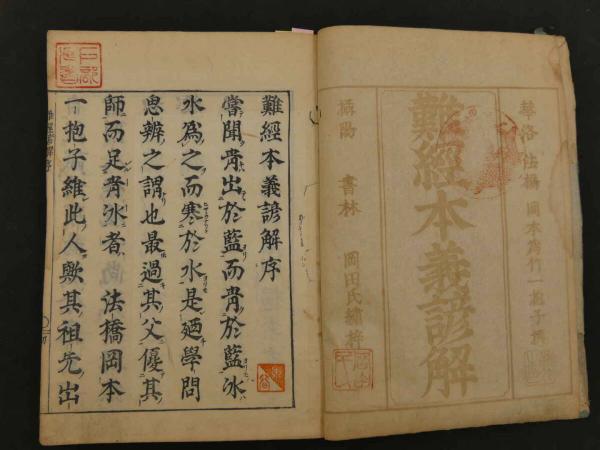 華洛 法橋 岡本為竹一抱子撰
難經本義諺解
攝陽 書林 岡田氏繡梓
難經本義諺解序
嘗聞青出於藍而青於藍冰
水為之而寒於水是廼學問
思辨之謂也最過其父優其
師而足青冰者法橋岡本
一抱子維此人歟其祖先出